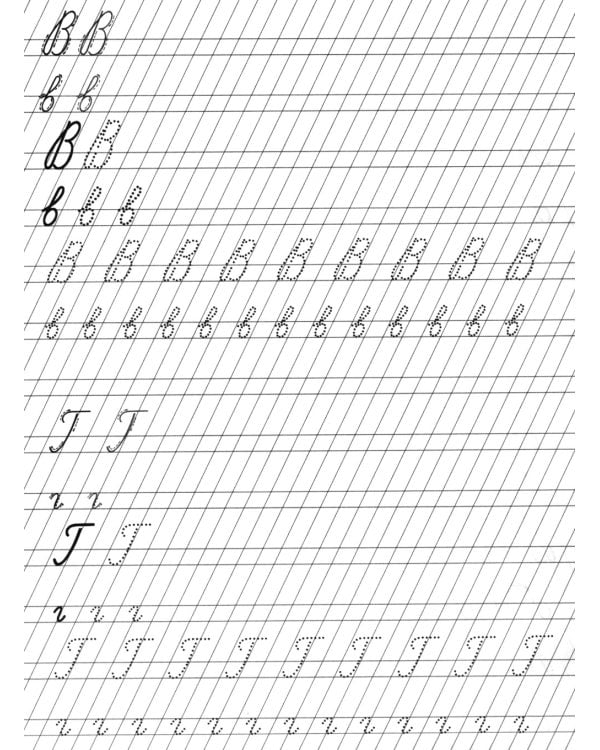 В В
в в
В В
в в в
В В В В В В В В В
в в в в в в в в в в в в в
Г Г
г г
Г Г
г г г
Г Г Г Г Г Г Г Г Г
г г г г г г г г г г г г г